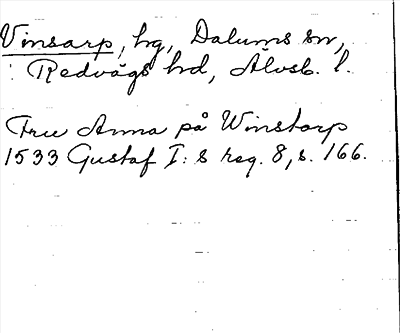 Vinsarp, hg, Dalums sn,
Redvägs hd, Älvsb. l.
Fru Anna på Winstorp
1533 Gustaf I:s reg. 8, s. 166.